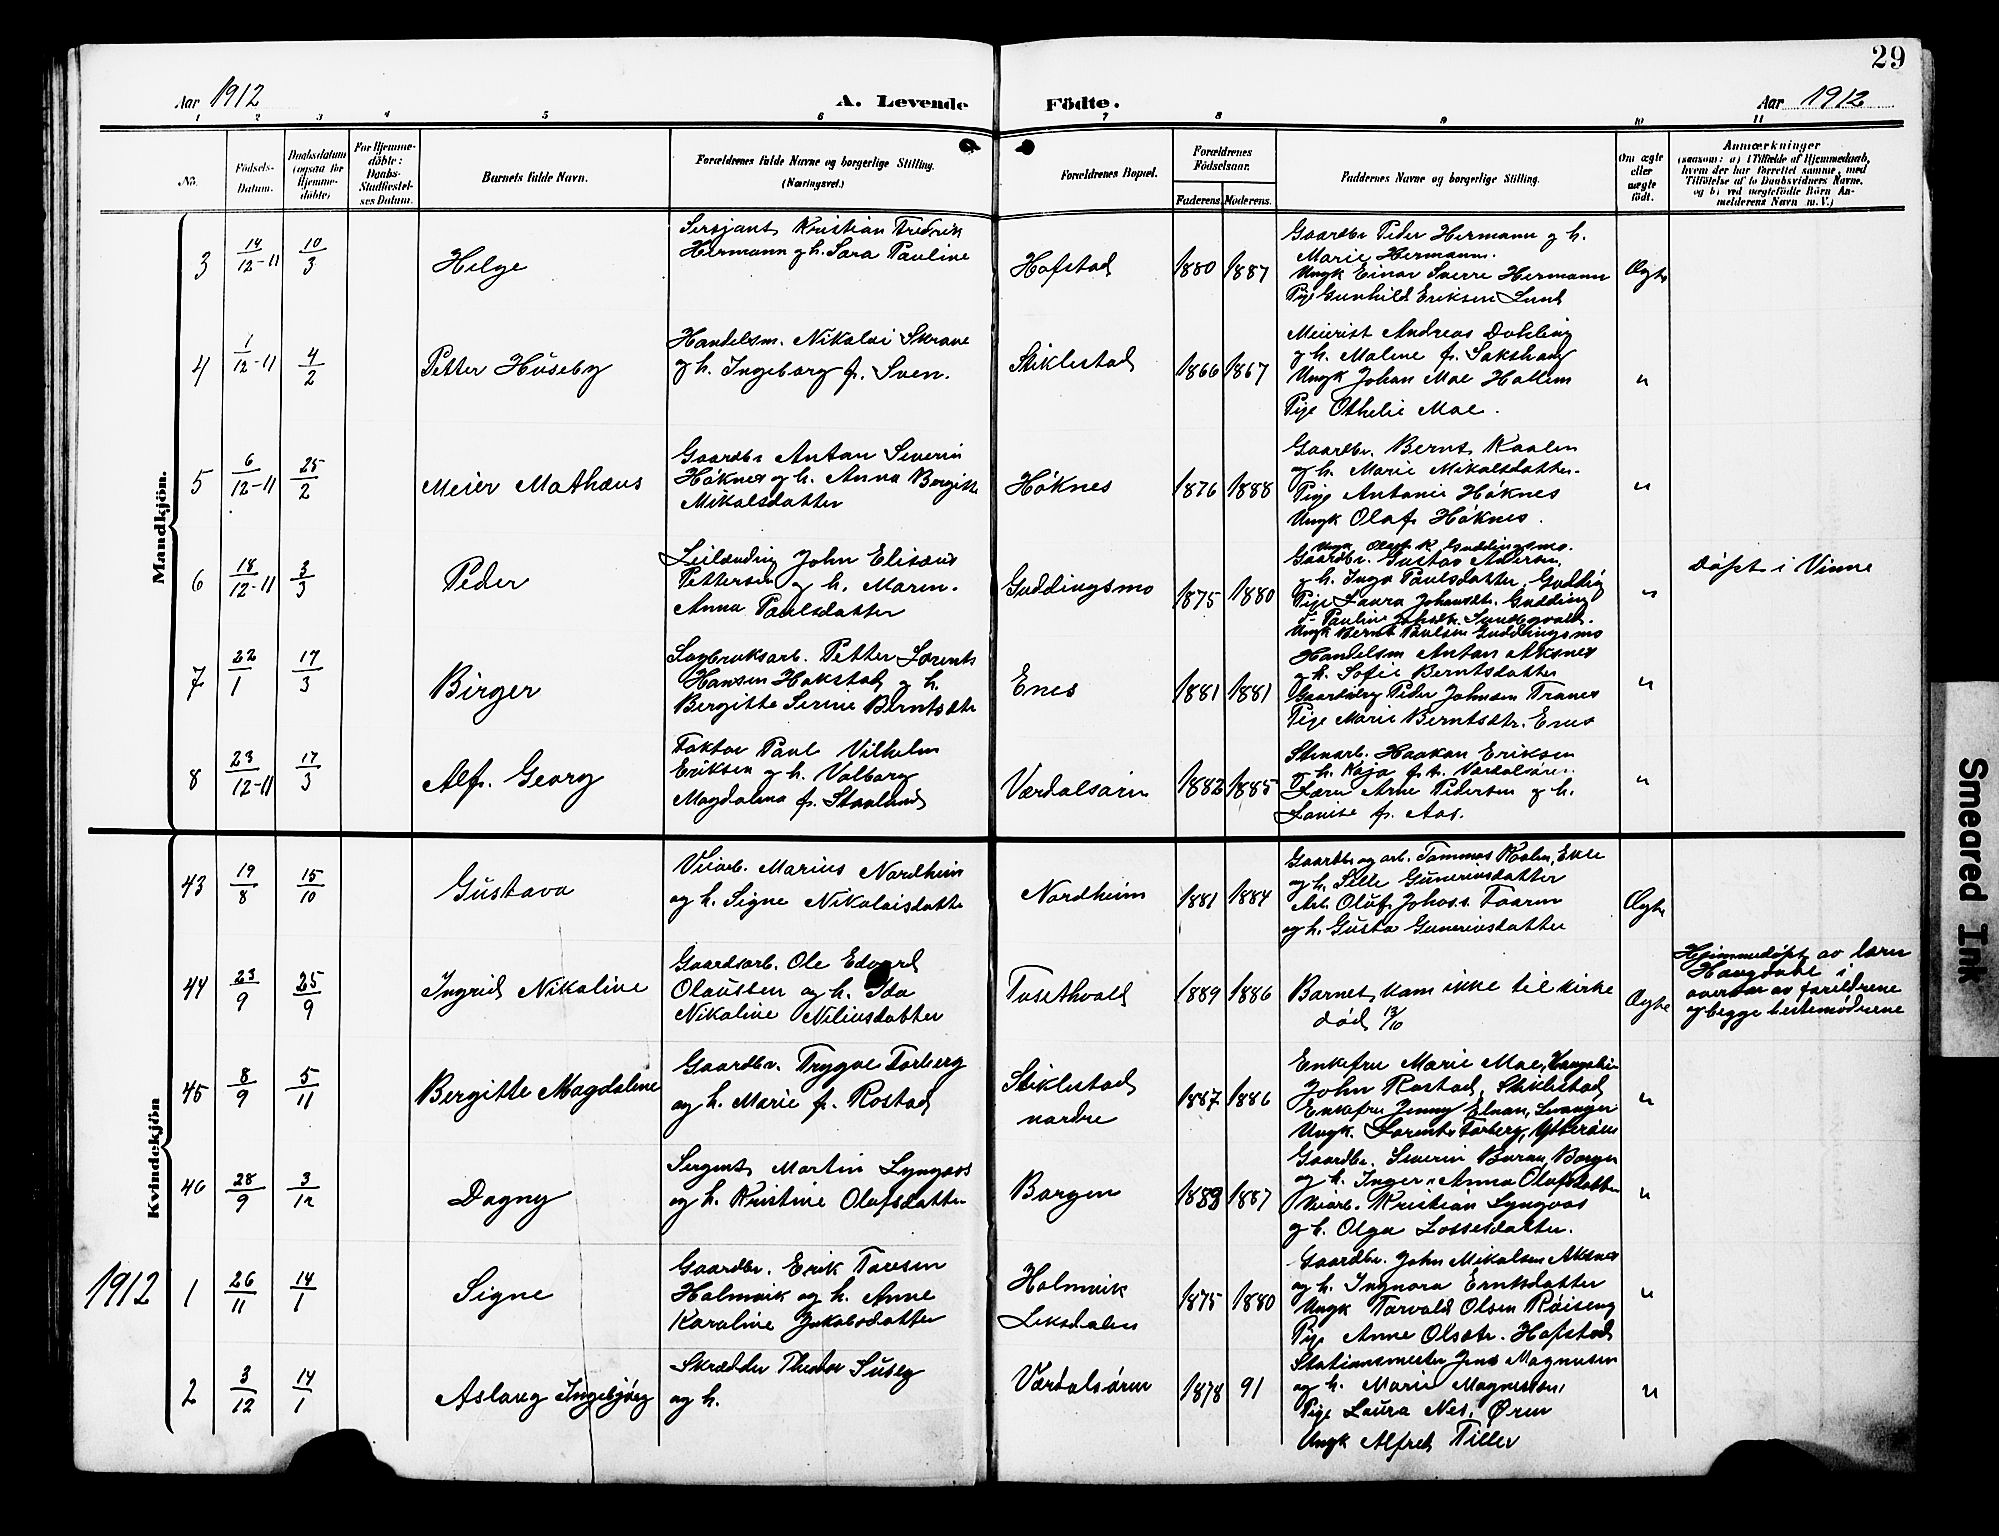 29
Aar 1912
A. Levende
Födte.
Aar 1912
1 2 3 4 5 6 7 8 9 10 11
No.
Födsels-
Datum.
Daabsdatum
(ogsaa for
Hjemme-
döbte)
For Hjemme-
döbte:
Daabs-
Stadfæstel-
ses Datum.
Barnets fulde Navn.
Forældrenes fulde Navne og borgerlige Stilling.
(Næringsvei.)
Forældrenes Bopæl.
Forældrenes
Födselsaar.
Faderens. Moderens.
Faddernes Navne og borgerlige Stilling.
Om ægte
eller
uægte
födt.
Anmærkninger
(saasom: a) i Tilfælde af Hjemmedaab,
hvem der har forrettet samme, med
Tilföielse af to Daabsvidners Navne.
og b) ved uægtefödte Börn An-
melderens Navn m. V.)
Mandkjön.
3
14/12-11
10/3
Helge
Sersjant Kristian Fredrik
Hermann og h. Sara Pauline
Hofstad
1880 1887
Gaardbr Peder Hermann og h.
Marie Hermann.
Ungk Einar Sverre Hermann
Pige Gunhild Eriksen Lund
Ægte
4
1/12-11
4/2
Petter Huseby
Handelsm. Nikolai Skrove
og h. Ingeborg f. Sven.
Stiklestad
1866 1867
Meierist Andreas Dahling
og h. Malene f. Sakshaug
Ungk Johan Moe Hallem
Pige Othelie Moe.
"
5
6/12-11
25/2
Meier Mathæus
Gaardbr Anton Severin
Høknes og h. Anna Bergitte
Mikalsdatter
Høknes
1876 1888
Gaardbr. Bernt Kaalen
og h. Marie Mikalsdatter.
Pige Antonie Høknes
Ungk Olaf Høknes.
"
6
18/12-11
3/3
Peder
Leilænding John Elisæus
Pettersen og h. Maren
Anna Paulsdatter
Guddingsmo
1875 1880
Ungk Olaf K. Guddingsmo.
Gaardbr. Gustav Andersen,
og h. Inga Paulsdatter, Gudding
Pige Laura Johansdtr. Gudding
Ungk Bernt Paulsen Guddingsmo
"
døpt i Vinne
7
22/1
17/3
Birger
Sagbruksarb. Petter Lorents
Hansen Hokstad og h.
Bergitte Serine Berntsdtr
Enes
1881 1881
Handelsm Anton Aksnes
og h. Sofie Berntsdatter
Peder Johnsen Tranes
Pige Marie Berntsdtr. Enes
"
8
23/12-11
17/3
Alf Georg
Faktor Paul Vilhelm
Eriksen og h. Valborg
Magdalena f. Staalund
Værdalsøren
1882 1885
Stenarb. Haakon Eriksen
og h. Kaja f. Værdalsøren.
Lærer Arne Pedersen og h.
Lovise f. Aas.
"
Kvindekjön
43
19/8
15/10
Gustava
Veiarb. Marius Nordheim
og h. Signe Nikolaisdatter
Nordheim
1881 1884
Gaardbr og arb. Tommas Kaalen, Ekle
og h. Sille Guneriusdatter
Arb. Oluf Johans. Faaren
og h. Gusta Guneriusdatter
Ægte
44
23/9
25/9
Ingrid Nikoline
Gaardsarb. Ole Edvard
Olaussen og h. Ida
Nikoline Niliusdatter
Tusethvald
1889 1886
Barnet kom ikke til kirke
død 13/10
Ægte
Hjemmedøpt av lærer
Haugdahl i
overvær av forældrene
og begge bestemødrene
45
8/9
5/11
Bergitte Magdalene
Gaardbr. Trygve Forberg
og h. Marie f. Rostad
Stiklestad
nordre
1887 1886
Enkefru Marie Moe,
John Rostad, Stiklestad
Enkefru Jenny Elnan, Levanger
Ungk. Lorents Forberg, Ytterøen
"
46
28/9
3/12
Dagny
Sergent Martin Lyngaas
og h. Kristine Olafsdatter
Borgen
1888 1887
Gaardbr. Severin Buran, Borgen
og h. Inger Anna Olafsdatter
Veiarb. Kristian Lyngaas
og h. Olga Lossesdatter.
"
1912
1
26/11
14/1
Signe
Gaardbr. Erik Toresen
Holmvik og h. Anne
Karoline Jakobsdatter
Holmvik
Leksdalen
1875 1880
Gaardbr. John Mikalsen Aksnes
og h. Ingnora Erntsdatter
Ungk Torvald Olsen Røiseng
Pige Anne Olsdtr. Hofstad
"
2
3/12
14/1
Aslaug Ingebjørg
Skrædder Theodor Suseg
og h.
Værdalsøren
1878 91
Stationsmester Jens Magnusen
og h. Marie Magnussen,
Pige Laura Nes, Øren
Ungk Alfred Tiller
"
Smeared Ink